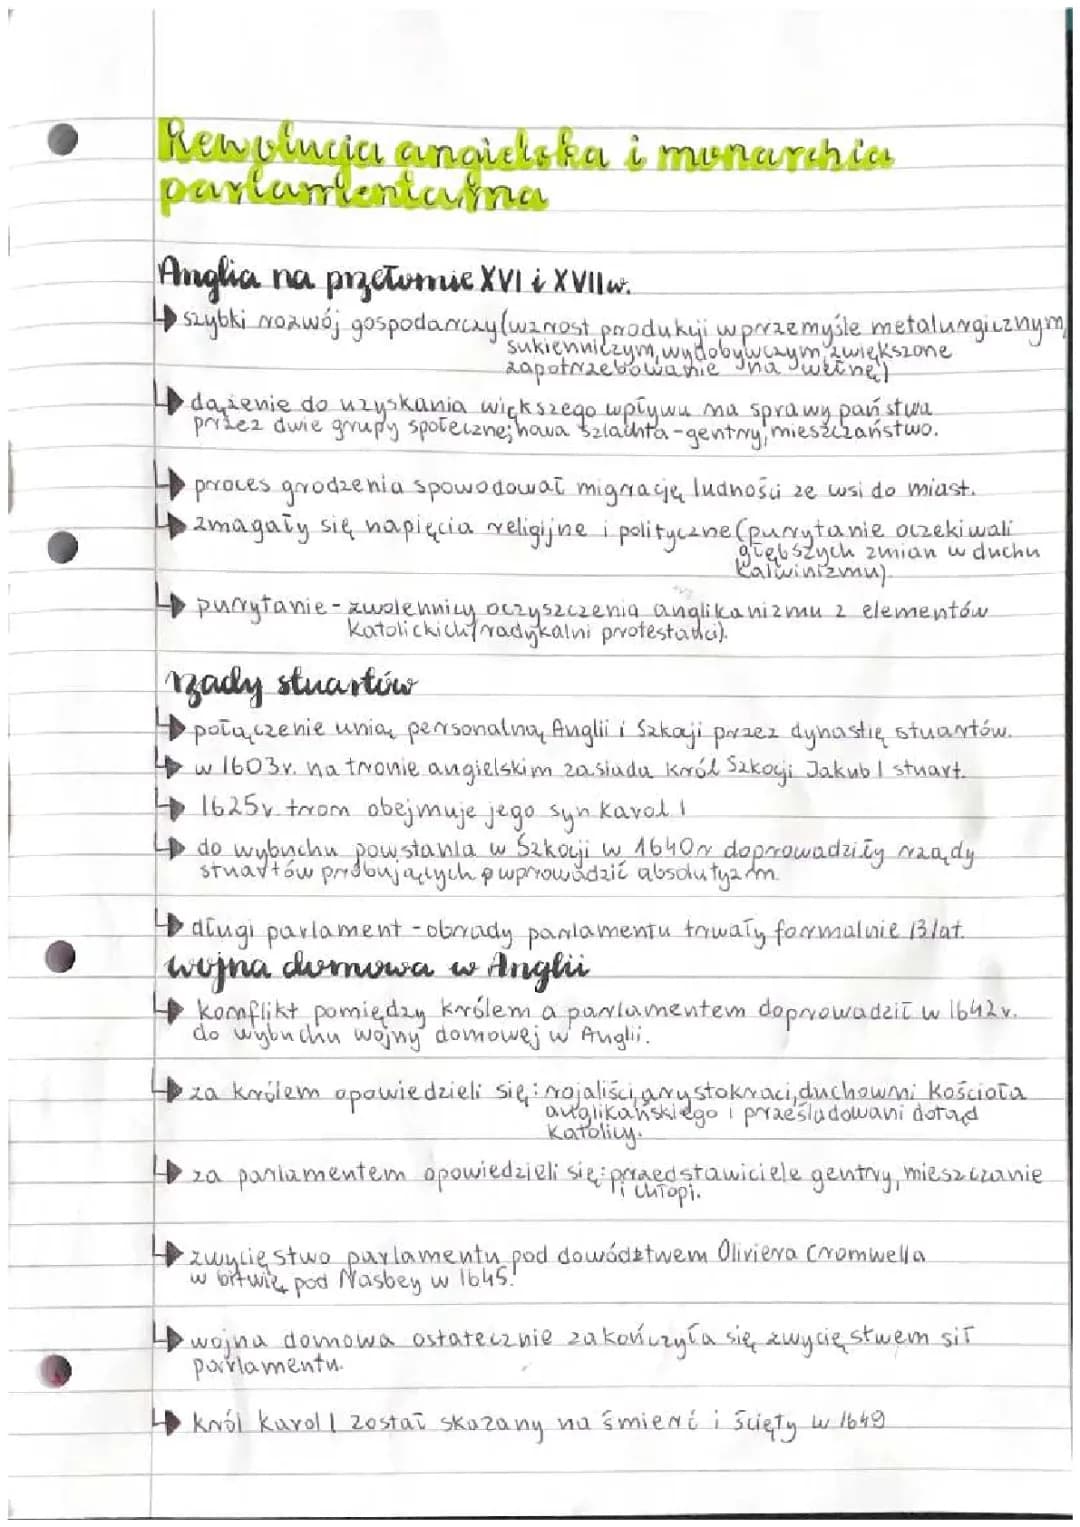 Rewolucja angielska i monarchia
parlamentarna
Anglia na przełomie XVI i XVII w.
↳ szybki rozwój gospodarczy (wzrost produkcji w przemyśle metalurgicznym,
sukienniczym, wydobywczym, zwiększone
zapotrzebowanie na wełnę)
↳ dążenie do uzyskania większego wpływu na sprawy państwa
przez dwie grupy społeczne; nowa szlachta - gentry, mieszczaństwo.
↳ proces grodzenia spowodował migrację ludności ze wsi do miast.
↳ zmagały się napięcia religijne i polityczne (purytanie oczekiwali
głębszych zmian w duchu
kalwinizmu).
↳ purytanie - zwolennicy oczyszczenia anglikanizmu z elementów
katolickich (radykalni protestanci).
rządy stuartów
↳ połączenie unią personalną Anglii i Szkocji przez dynastię stuartów.
↳ w 1603r. na tronie angielskim zasiada król Szkocji Jakub I stuart.
↳ 1625r tron obejmuje jego syn karol I
↳ do wybuchu powstania w Szkocji w 1640r doprowadziły rządy
stuartów próbujących wprowadzić absolutyzm.
↳ długi parlament - obrady parlamentu trwały formalnie 13 lat.
wojna domowa w Anglii
↳ konflikt pomiędzy królem a parlamentem doprowadził w 1642r.
do wybuchu wojny domowej w Anglii.
↳ za królem opowiedzieli się: rojaliści, arystokraci, duchowni kościoła
anglikańskiego i prześladowani dotąd
katolicy.
↳ za parlamentem opowiedzieli się: przedstawiciele gentry, mieszczanie
i chłopi.
↳ zwycięstwo parlamentu pod dowództwem Oliviera Cromwella
w bitwie pod Nasbey w 1645.
↳ wojna domowa ostatecznie zakończyła się zwycięstwem sił
parlamentu.
↳ król karol I został skazany na śmierć i ścięty w 1649